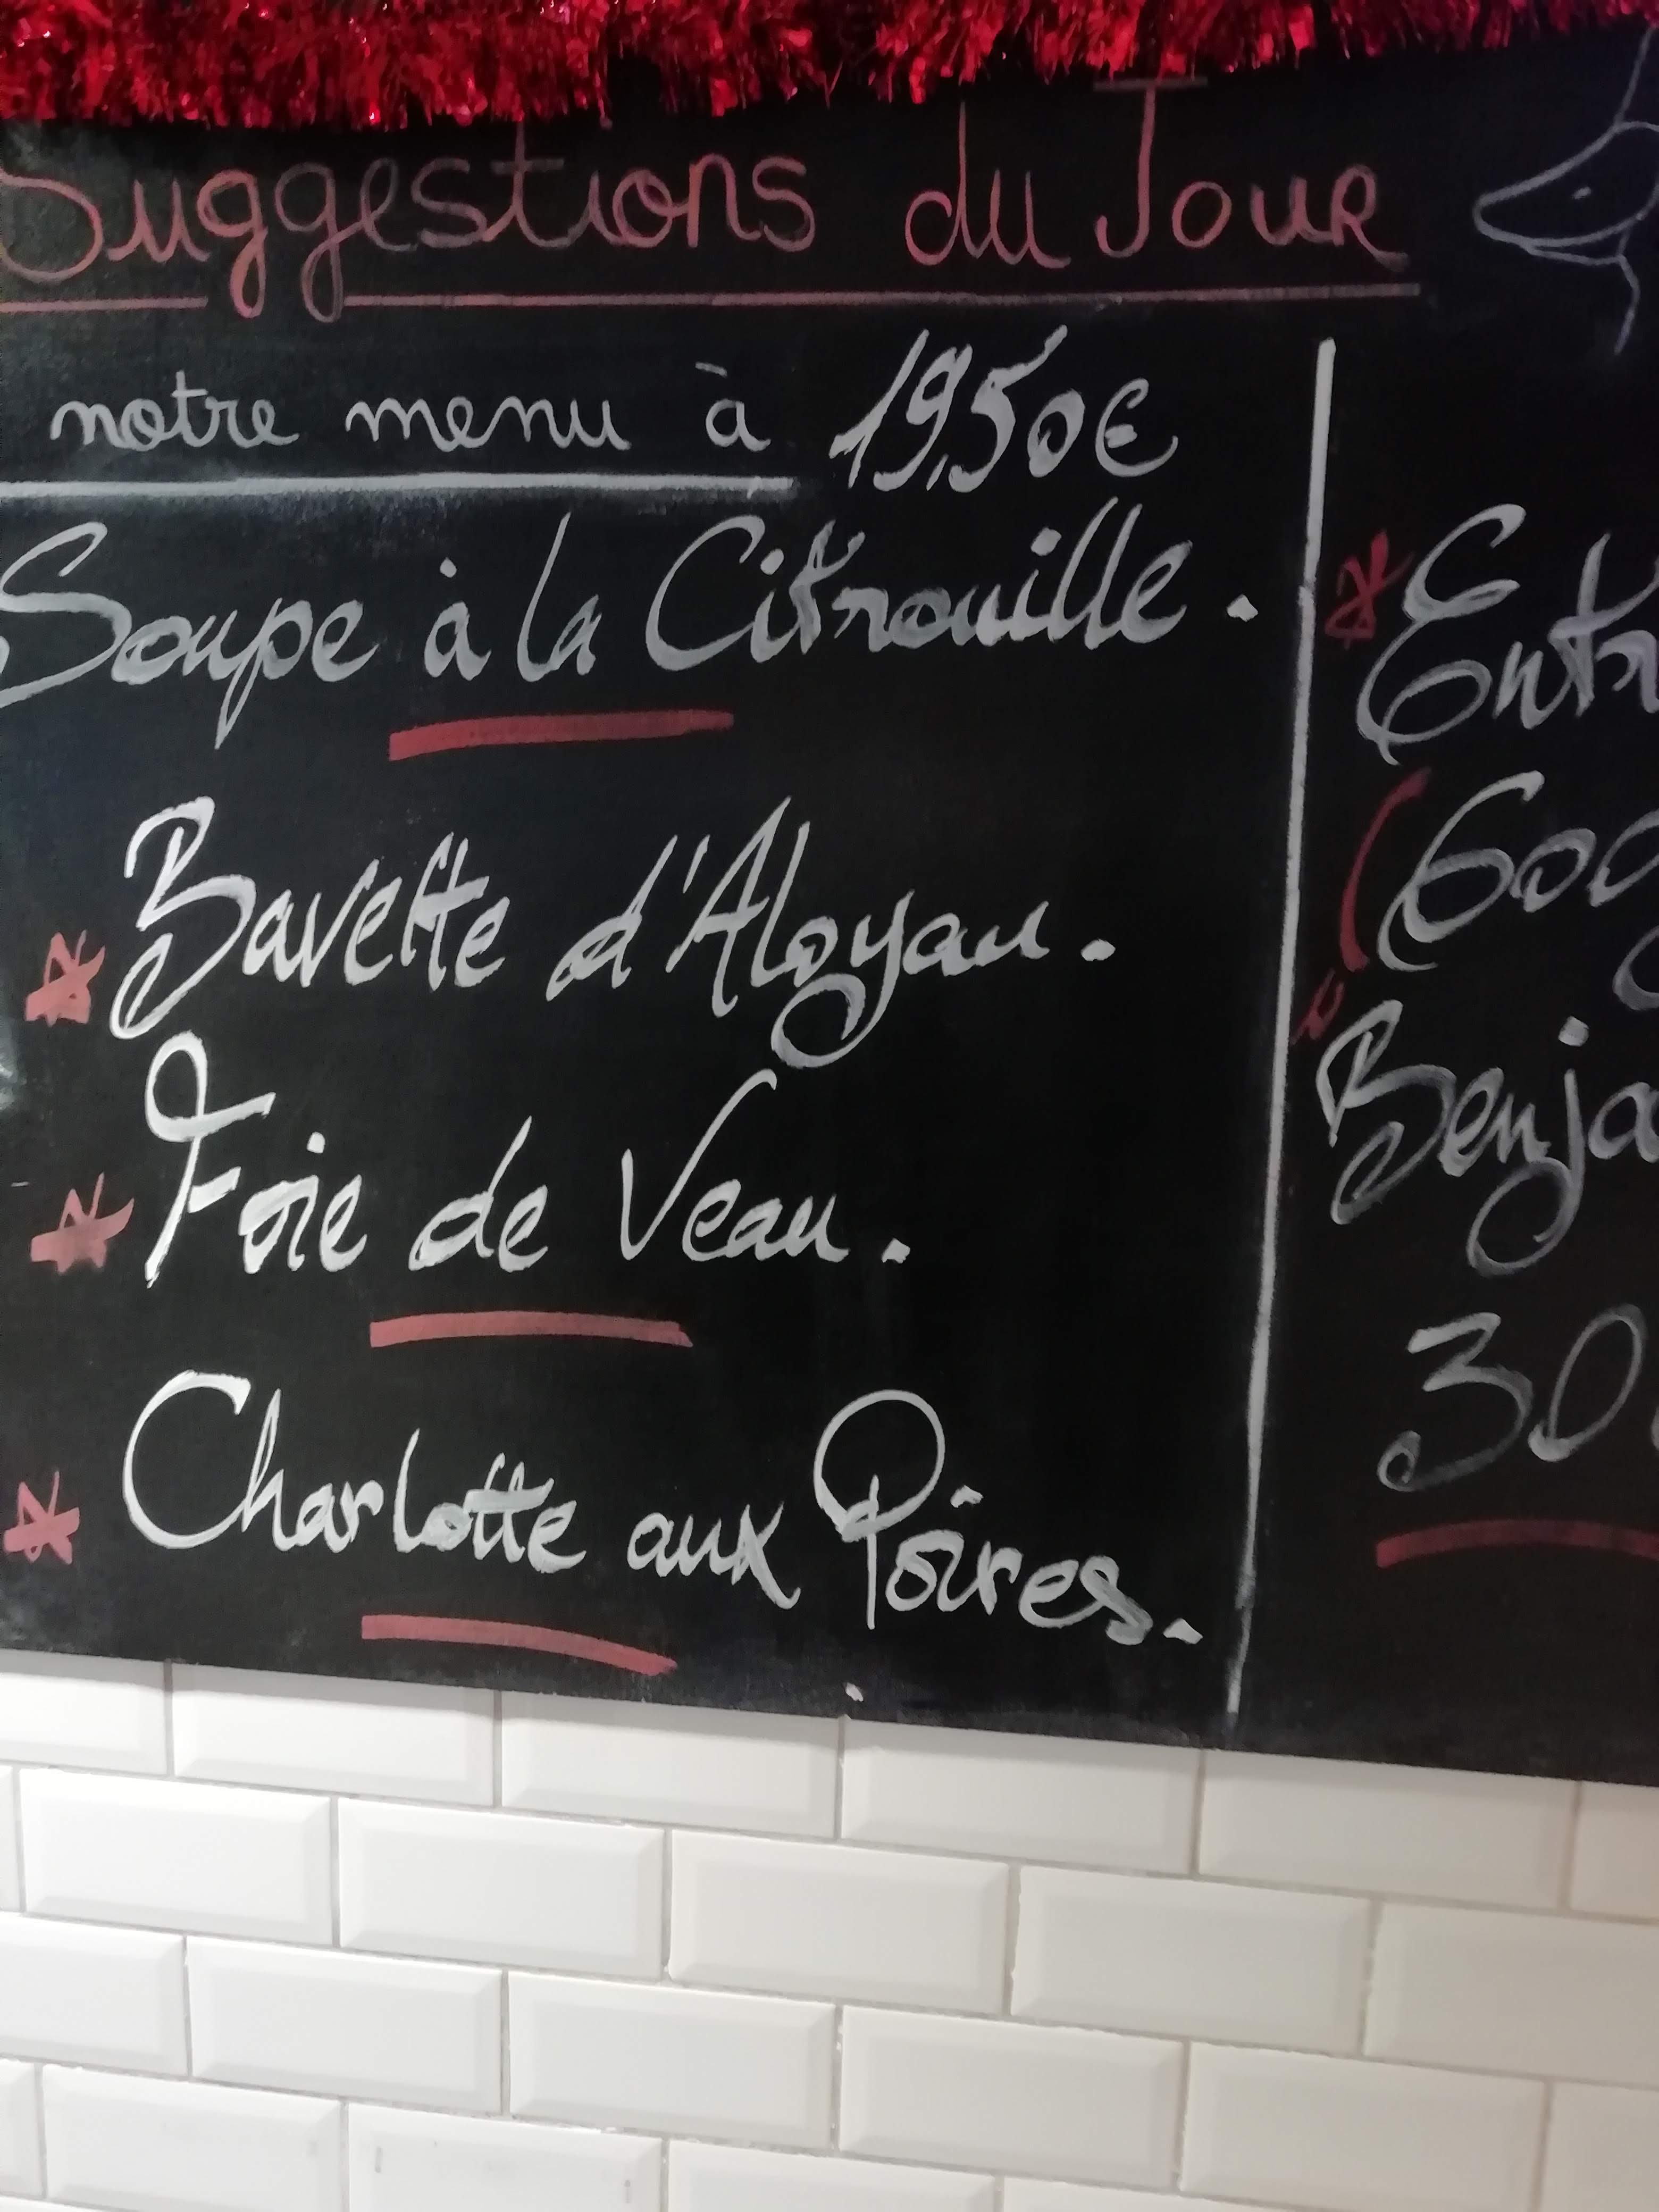 Suggestions du Jour
notre menu à 19,50€
Soupe à la Citrouille.
* Bavette d'Aloyau.
* Foie de Veau.
* Charlotte aux Poires.
* Entr
(600g
Benja
30